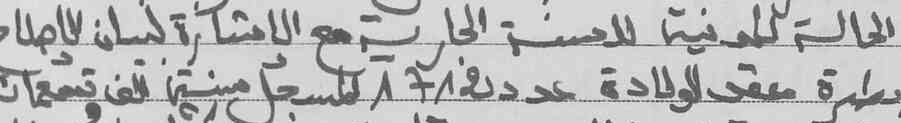 الحالة المدنية للسنة الجارية مع الاشارة لبيان الاصلاح
بطرة عقد الولادة عدد 1718 المسجل سنة الف وتسعمائة